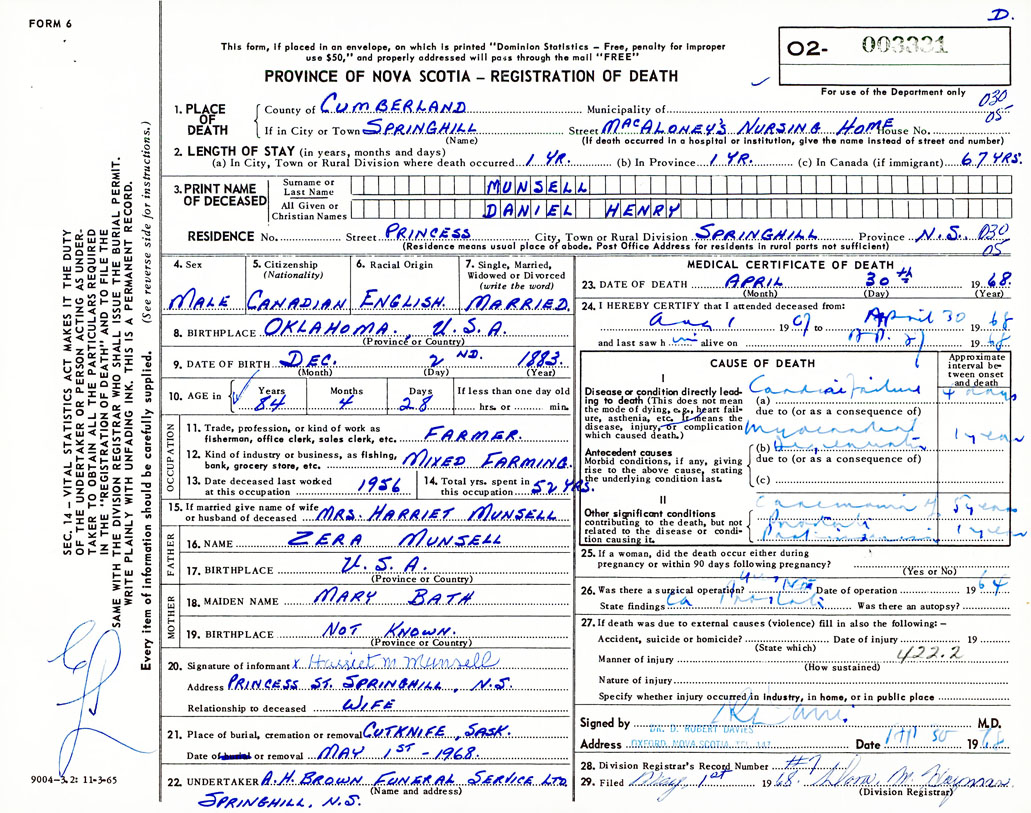 FORM 6
D.
This form, if placed in an envelope, on which is printed "Dominion Statistics – Free, penalty for improper
use $50," and properly addressed will pass through the mail "FREE"
PROVINCE OF NOVA SCOTIA – REGISTRATION OF DEATH
02- 003331
For use of the Department only
030
05
1. PLACE OF DEATH
County of CUMBERLAND Municipality of
If in City or Town SPRINGHILL Street MACALONEY'S NURSING HOME House No.
(Name) (If death occurred in a hospital or institution, give the name instead of street and number)
2. LENGTH OF STAY (in years, months and days)
(a) In City, Town or Rural Division where death occurred 1 YR. (b) In Province 1 YR. (c) In Canada (if immigrant) 67 YRS.
3. PRINT NAME OF DECEASED
Surname or Last Name MUNSELL
All Given or Christian Names DANIEL HENRY
RESIDENCE No. Street PRINCESS City, Town or Rural Division SPRINGHILL Province N.S. 030
(Residence means usual place of abode. Post Office Address for residents in rural parts not sufficient) 05
4. Sex
MALE
5. Citizenship
(Nationality)
CANADIAN
6. Racial Origin
ENGLISH.
7. Single, Married,
Widowed or Divorced
(write the word)
MARRIED.
8. BIRTHPLACE OKLAHOMA, U.S.A.
(Province or Country)
9. DATE OF BIRTH DEC. 2ND. 1883.
(Month) (Day) (Year)
10. AGE in
Years Months Days If less than one day old
84 4 28 hrs. or min.
OCCUPATION
11. Trade, profession, or kind of work as
fisherman, office clerk, sales clerk, etc. FARMER.
12. Kind of industry or business, as fishing,
bank, grocery store, etc. MIXED FARMING.
13. Date deceased last worked
at this occupation 1956
14. Total yrs. spent in
this occupation 52 YRS.
15. If married give name of wife
or husband of deceased MRS. HARRIET MUNSELL
FATHER
16. NAME ZERA MUNSELL
17. BIRTHPLACE U.S.A.
(Province or Country)
MOTHER
18. MAIDEN NAME MARY BATH
19. BIRTHPLACE NOT KNOWN.
(Province or Country)
20. Signature of informant x Harriet M Munsell
Address PRINCESS ST. SPRINGHILL, N.S.
Relationship to deceased WIFE
21. Place of burial, cremation or removal CUTKNIFE, SASK.
Date of burial or removal MAY 1ST - 1968.
22. UNDERTAKER A.H. BROWN FUNERAL SERVICE LTD.
(Name and address)
SPRINGHILL, N.S.
MEDICAL CERTIFICATE OF DEATH
23. DATE OF DEATH APRIL 30th 1968.
(Month) (Day) (Year)
24. I HEREBY CERTIFY that I attended deceased from:
Aug 1 1967 to April 30 1968
and last saw him alive on Ap. 29 1968
CAUSE OF DEATH
Approximate interval between onset and death
I
Disease or condition directly leading to death (This does not mean the mode of dying, e.g., heart failure, asthenia, etc. It means the disease, injury, or complication which caused death.)
(a) Cardiac failure 4 days
due to (or as a consequence of)
Myocardial
(b) Degeneration 1 year
Antecedent causes
Morbid conditions, if any, giving rise to the above cause, stating the underlying condition last.
due to (or as a consequence of)
(c)
II
Other significant conditions
contributing to the death, but not related to the disease or condition causing it.
Carcinoma of 5 years
Prostate
1 year
25. If a woman, did the death occur either during
pregnancy or within 90 days following pregnancy?
(Yes or No)
26. Was there a surgical operation? yes Date of operation 1964
State findings Ca Prostate Was there an autopsy?
27. If death was due to external causes (violence) fill in also the following: –
Accident, suicide or homicide? Date of injury 19
(State which)
Manner of injury 422.2
(How sustained)
Nature of injury
Specify whether injury occurred in Industry, in home, or in public place
Signed by M.D.
DR. D. ROBERT DAVIES
Address OXFORD, NOVA SCOTIA Date Ap 30 1968
28. Division Registrar's Record Number #7
29. Filed May 1st 1968
(Division Registrar)
SEC. 14 – VITAL STATISTICS ACT MAKES IT THE DUTY
OF THE UNDERTAKER OR PERSON ACTING AS UNDER-
TAKER TO OBTAIN ALL THE PARTICULARS REQUIRED
IN THE "REGISTRATION OF DEATH" AND TO FILE THE
SAME WITH THE DIVISION REGISTRAR WHO SHALL ISSUE THE BURIAL PERMIT.
WRITE PLAINLY WITH UNFADING INK. THIS IS A PERMANENT RECORD.
Every item of information should be carefully supplied. (See reverse side for instructions.)
9004-3.2: 11-3-65